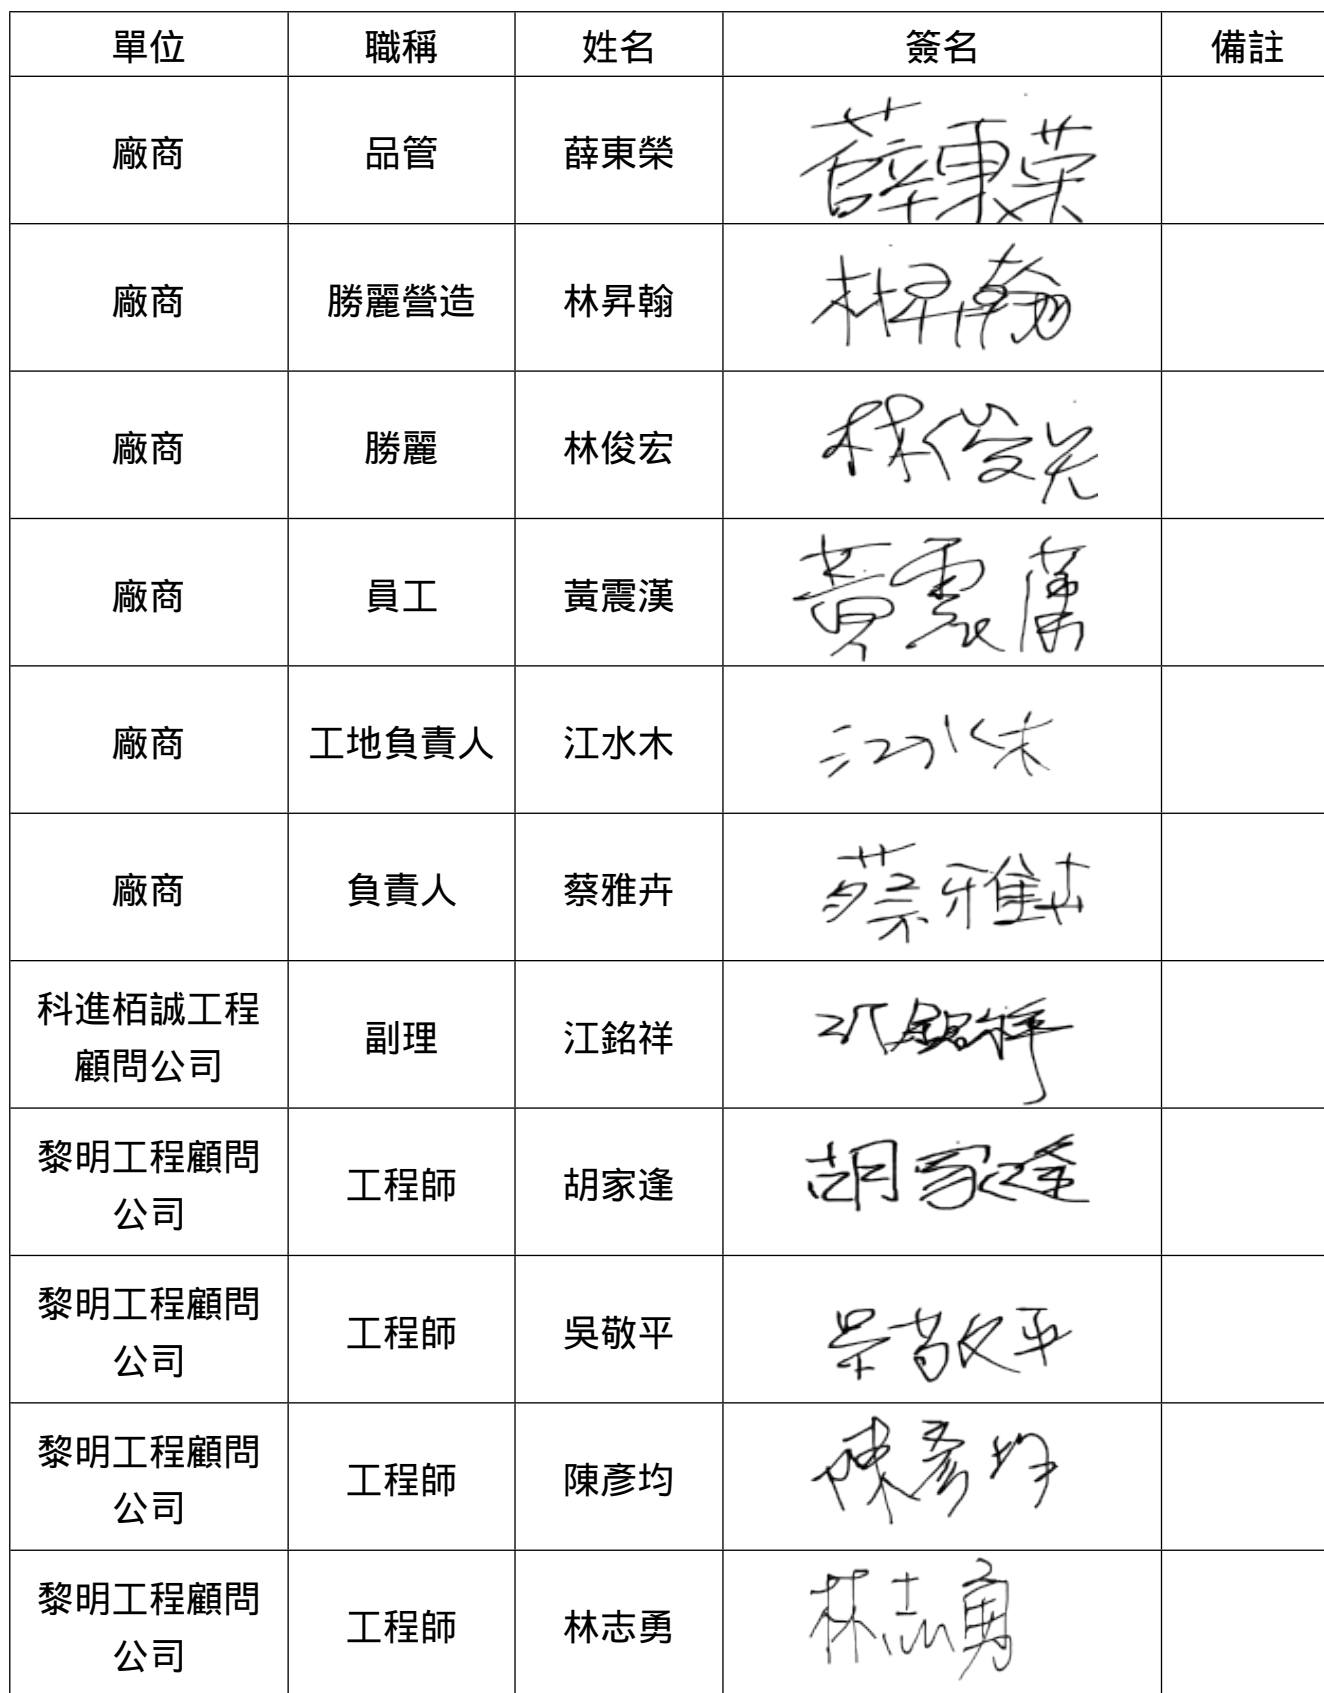 單位 職稱 姓名 簽名 備註
廠商 品管 薛東榮 薛東荣
廠商 勝麗營造 林昇翰 林昇翰
廠商 勝麗 林俊宏 林俊宏
廠商 員工 黃震漢 黃震漢
廠商 工地負責人 江水木 江水木
廠商 負責人 蔡雅卉 蔡雅卉
科進栢誠工程
顧問公司 副理 江銘祥 江銘祥
黎明工程顧問
公司 工程師 胡家逢 胡家逢
黎明工程顧問
公司 工程師 吳敬平 吳敬平
黎明工程顧問
公司 工程師 陳彥均 陳彥均
黎明工程顧問
公司 工程師 林志勇 林志勇